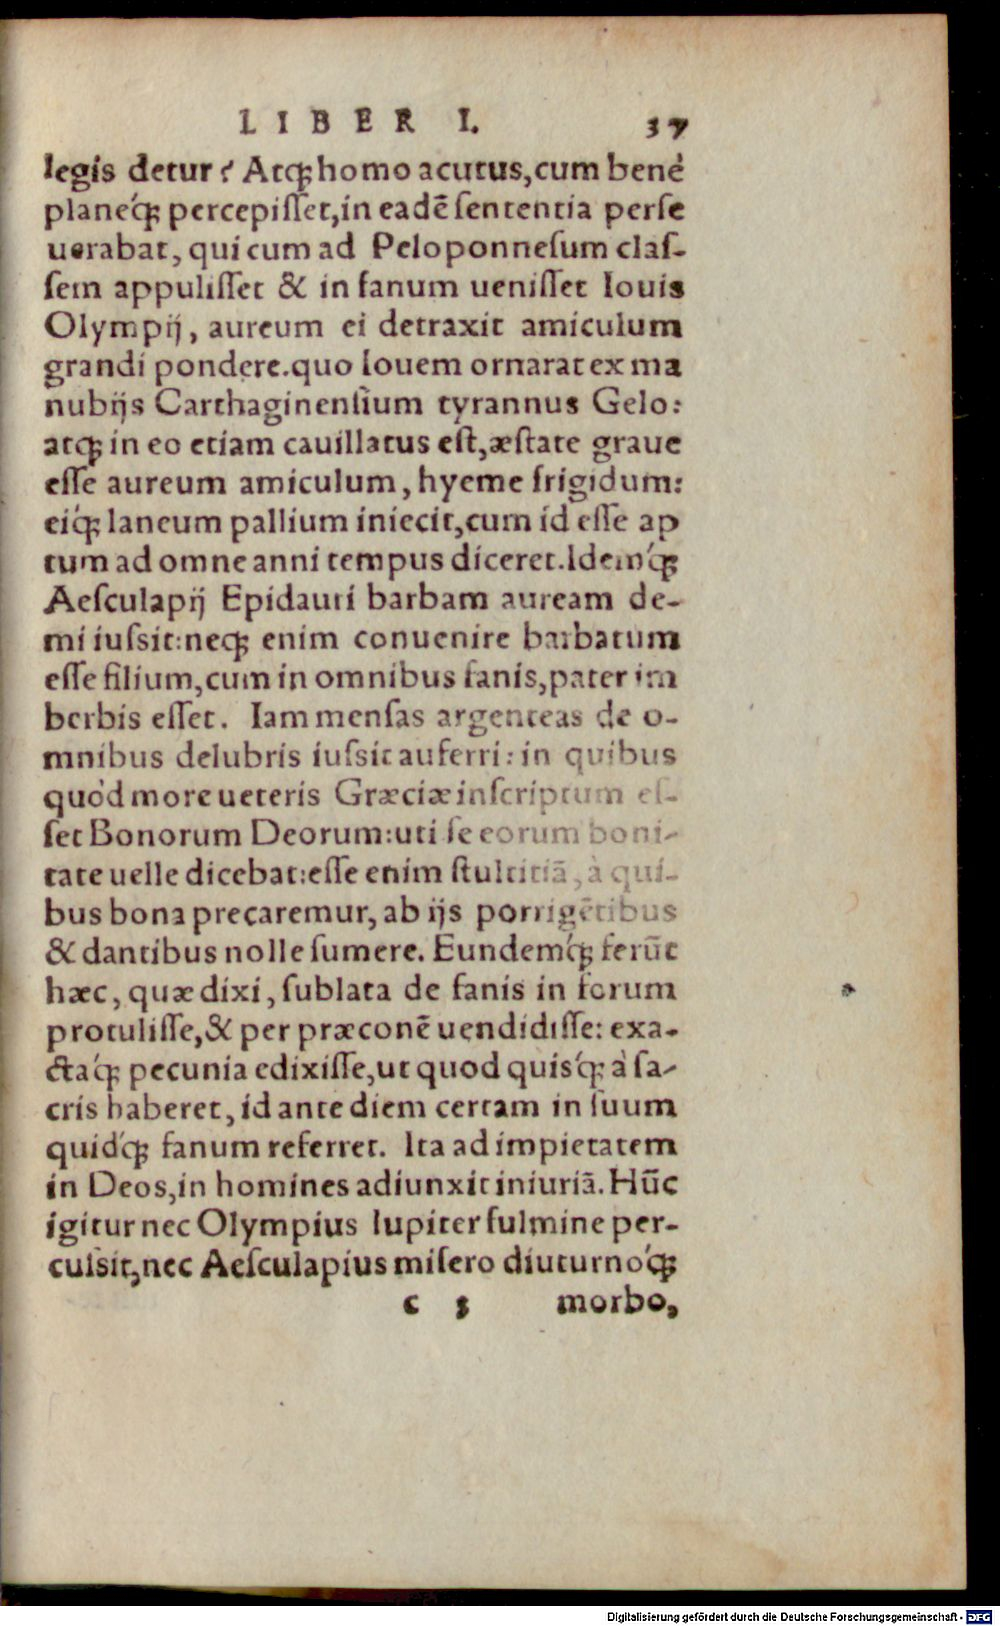 LIBER I. 37
legis detur? Atq́ꝫ homo acutus, cum bene
planeq́ꝫ percepiſſet, in eadē ſententia perſe
uerabat, qui cum ad Peloponneſum claſ-
ſem appuliſſet & in fanum ueniſſet Iouis
Olympij, aureum ei detraxit amiculum
grandi pondere. quo Iouem ornarat ex ma
nubijs Carthaginenſium tyrannus Gelo:
atqꝫ in eo etiam cauillatus eſt, æſtate graue
eſſe aureum amiculum, hyeme frigidum:
eiq́ꝫ laneum pallium iniecit, cum id eſſe ap
tum ad omne anni tempus diceret. Idemq́ꝫ
Aeſculapij Epidauri barbam auream de-
mi iuſsit: neqꝫ enim conuenire barbatum
eſſe filium, cum in omnibus fanis, pater im
berbis eſſet. Iam menſas argenteas de o-
mnibus delubris iuſsit auferri: in quibus
quòd more ueteris Græciæ inſcriptum eſ-
ſet Bonorum Deorum: uti ſe eorum boni-
tate uelle dicebat: eſſe enim ſtultitiā, à qui-
bus bona precaremur, ab ijs porrigētibus
& dantibus nolle ſumere. Eundemq́ꝫ ferūt
hæc, quæ dixi, ſublata de fanis in forum
protuliſſe, & per præconē uendidiſſe: exa-
ctaq́ꝫ pecunia edixiſſe, ut quod quisq́ꝫ à ſa-
cris haberet, id ante diem certam in ſuum
quidq́ꝫ fanum referret. Ita ad impietatem
in Deos, in homines adiunxit iniuriā. Hūc
igitur nec Olympius Iupiter fulmine per-
cuſsit, nec Aeſculapius miſero diuturnoq́ꝫ
c 3 morbo,
Digitalisierung gefördert durch die Deutsche Forschungsgemeinschaft - DFG